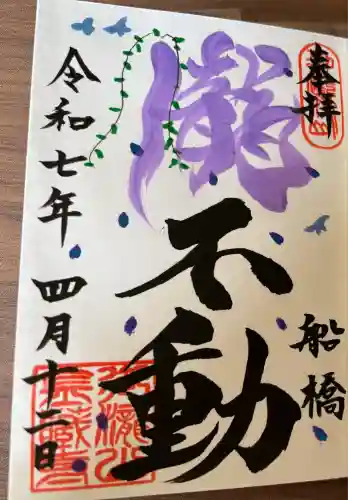 奉拝
船橋
瀧
不動
令和七年 四月十二日